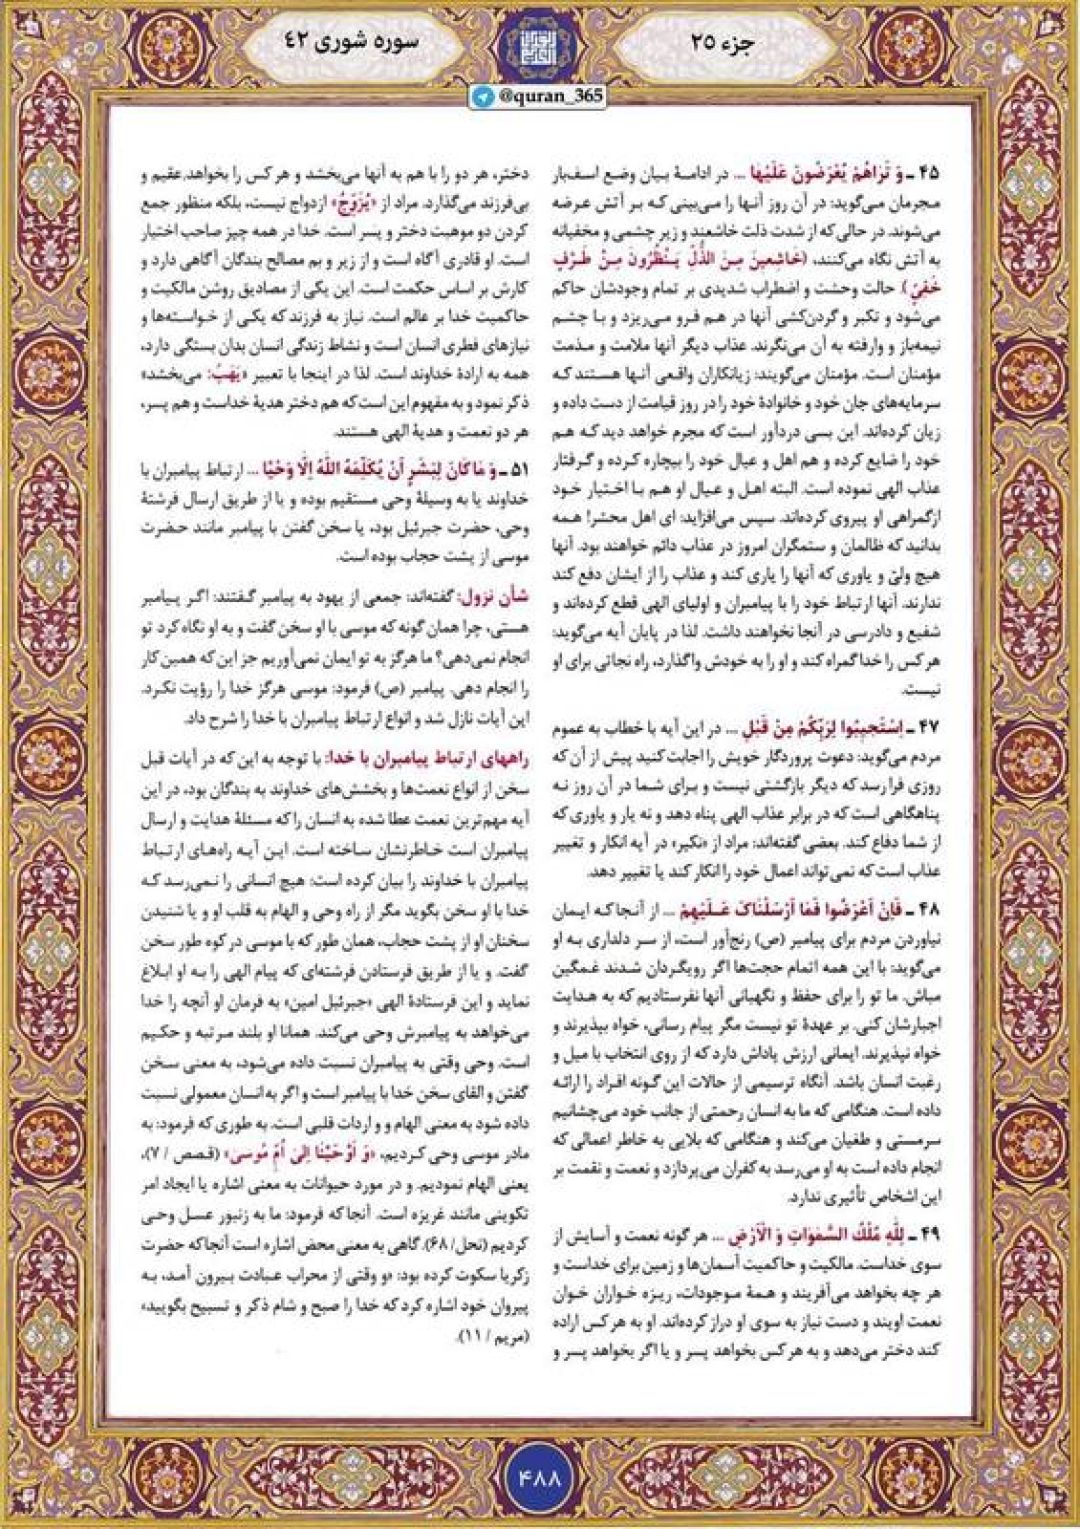 جزء ۲۵
سوره شوری ۴۲
@quran_365
۴۵ ـ وَ تَرَاهُمْ يُعْرَضُونَ عَلَيْهَا ... در ادامهٔ بیان وضع اسف‌بار
مجرمان می‌گوید: در آن روز آنها را می‌بینی که بر آتش عرضه
می‌شوند. در حالی‌که از شدت ذلت خاشعند و زیر چشمی و مخفیانه
به آتش نگاه می‌کنند، (خَاشِعِینَ مِنَ الذُّلِّ یَنْظُرُونَ مِنْ طَرْفٍ
خَفِیٍّ) حالت وحشت و اضطراب شدیدی بر تمام وجودشان حاکم
می‌شود و تکبر و گردن‌کشی آنها در هم فرو می‌ریزد و با چشم
نیمه‌باز و وارفته به آن می‌نگرند. عذاب دیگر آنها ملامت و مذمت
مؤمنان است. مؤمنان می‌گویند: زیانکاران واقعی آنها هستند که
سرمایه‌های جان خود و خانوادهٔ خود را در روز قیامت از دست داده و
زیان کرده‌اند. این بسی دردآور است که مجرم خواهد دید که هم
خود را ضایع کرده و هم اهل و عیال خود را بیچاره کرده و گرفتار
عذاب الهی نموده است. البته اهل و عیال او هم با اختیار خود
ازگمراهی او پیروی کرده‌اند. سپس می‌افزاید: ای اهل محشر! همه
بدانید که ظالمان و ستمگران امروز در عذاب دائم خواهند بود. آنها
هیچ ولیّ و یاوری که آنها را یاری کند و عذاب را از ایشان دفع کند
ندارند. آنها ارتباط خود را با پیامبران و اولیای الهی قطع کرده‌اند و
شفیع و دادرسی در آنجا نخواهند داشت. لذا در پایان آیه می‌گوید:
هر کس را خدا گمراه کند و او را به خودش واگذارد، راه نجاتی برای او
نیست.
۴۷ ـ اِسْتَجِيبُوا لِرَبِّكُمْ مِنْ قَبْلِ ... در این آیه با خطاب به عموم
مردم می‌گوید: دعوت پروردگار خویش را اجابت کنید پیش از آن که
روزی فرا رسد که دیگر بازگشتی نیست و برای شما در آن روز نه
پناهگاهی است که در برابر عذاب الهی پناه دهد و نه یار و یاوری که
از شما دفاع کند. بعضی گفته‌اند: مراد از «نکیر» در آیه انکار و تغییر
عذاب است که نمی‌تواند اعمال خود را انکار کند یا تغییر دهد.
۴۸ ـ فَاِنْ اَعْرَضُوا فَمَا اَرْسَلْنَاکَ عَـلَيْهِمْ ... از آنجا که ایمان
نیاوردن مردم برای پیامبر (ص) رنج‌آور است، از سر دلداری به او
می‌گوید: با این همه اتمام حجت‌ها اگر رویگردان شدند غمگین
مباش. ما تو را برای حفظ و نگهبانی آنها نفرستادیم که به هدایت
اجبارشان کنی. بر عهدهٔ تو نیست مگر پیام رسانی، خواه بپذیرند و
خواه نپذیرند. ایمانی ارزش پاداش دارد که از روی انتخاب با میل و
رغبت انسان باشد. آنگاه ترسیمی از حالات این گونه افراد را ارائه
داده است. هنگامی که ما به انسان رحمتی از جانب خود می‌چشانیم
سرمستی و طغیان می‌کند و هنگامی که بلایی به خاطر اعمالی که
انجام داده است به او می‌رسد به کفران می‌پردازد و نعمت و نقمت بر
این اشخاص تأثیری ندارد.
۴۹ ـ لِلّٰهِ مُلْکُ السَّمٰوَاتِ وَ الْاَرْضِ ... هر گونه نعمت و آسایش از
سوی خداست. مالکیت و حاکمیت آسمان‌ها و زمین برای خداست و
هر چه بخواهد می‌آفریند و همهٔ موجودات، ریزه خواران خوان
نعمت اویند و دست نیاز به سوی او دراز کرده‌اند. او به هر کس اراده
کند دختر می‌دهد و به هر کس بخواهد پسر و یا اگر بخواهد پسر و
دختر، هر دو را با هم به آنها می‌بخشد و هر کس را بخواهد عقیم و
بی‌فرزند می‌گذارد. مراد از «یُزَوِّجُ» ازدواج نیست، بلکه منظور جمع
کردن دو موهبت دختر و پسر است. خدا در همه چیز صاحب اختیار
است. او قادری آگاه است و از زیر و بم مصالح بندگان آگاهی دارد و
کارش بر اساس حکمت است. این یکی از مصادیق روشن مالکیت و
حاکمیت خدا بر عالم است. نیاز به فرزند که یکی از خواسته‌ها و
نیازهای فطری انسان است و نشاط زندگی انسان بدان بستگی دارد،
همه به ارادهٔ خداوند است. لذا در اینجا با تعبیر «یَهَبُ: می‌بخشد»
ذکر نمود و به مفهوم این است که هم دختر هدیهٔ خداست و هم پسر،
هر دو نعمت و هدیهٔ الهی هستند.
۵۱ ـ وَ مَا کَانَ لِبَشَرٍ اَنْ یُکَلِّمَهُ اللّٰهُ اِلَّا وَحْیًا ... ارتباط پیامبران با
خداوند یا به وسیلهٔ وحی مستقیم بوده و یا از طریق ارسال فرشتهٔ
وحی، حضرت جبرئیل بود، یا سخن گفتن با پیامبر مانند حضرت
موسی از پشت حجاب بوده است.
شأن نزول: گفته‌اند: جمعی از یهود به پیامبر گفتند: اگر پیامبر
هستی، چرا همان گونه که موسی با او سخن گفت و به او نگاه کرد تو
انجام نمی‌دهی؟ ما هرگز به تو ایمان نمی‌آوریم جز این که همین کار
را انجام دهی. پیامبر (ص) فرمود: موسی هرگز خدا را رؤیت نکرد.
این آیات نازل شد و انواع ارتباط پیامبران با خدا را شرح داد.
راههای ارتباط پیامبران با خدا: با توجه به این که در آیات قبل
سخن از انواع نعمت‌ها و بخشش‌های خداوند به بندگان بود، در این
آیه مهم‌ترین نعمت عطا شده به انسان را که مسئلهٔ هدایت و ارسال
پیامبران است خاطرنشان ساخته است. این آیه راه‌های ارتباط
پیامبران با خداوند را بیان کرده است: هیچ انسانی را نمی‌رسد که
خدا با او سخن بگوید مگر از راه وحی و الهام به قلب او و یا شنیدن
سخنان او از پشت حجاب، همان طور که با موسی در کوه طور سخن
گفت. و یا از طریق فرستادن فرشته‌ای که پیام الهی را به او ابلاغ
نماید و این فرستادهٔ الهی «جبرئیل امین» به فرمان او آنچه را خدا
می‌خواهد به پیامبرش وحی می‌کند. همانا او بلند مرتبه و حکیم
است. وحی وقتی به پیامبران نسبت داده می‌شود، به معنی سخن
گفتن و القای سخن خدا با پیامبر است و اگر به انسان معمولی نسبت
داده شود به معنی الهام و و اردات قلبی است. به طوری که فرمود: به
مادر موسی وحی کردیم، «وَ اَوْحَیْنَا اِلیٰ اُمِّ مُوسی» (قصص / ۷)،
یعنی الهام نمودیم. و در مورد حیوانات به معنی اشاره یا ایجاد امر
تکوینی مانند غریزه است. آنجا که فرمود: ما به زنبور عسل وحی
کردیم (نحل/ ۶۸). گاهی به معنی محض اشاره است آنجا که حضرت
زکریا سکوت کرده بود: «و وقتی از محراب عبادت بیرون آمد، به
پیروان خود اشاره کرد که خدا را صبح و شام ذکر و تسبیح بگویید»
(مریم / ۱۱).
۴۸۸